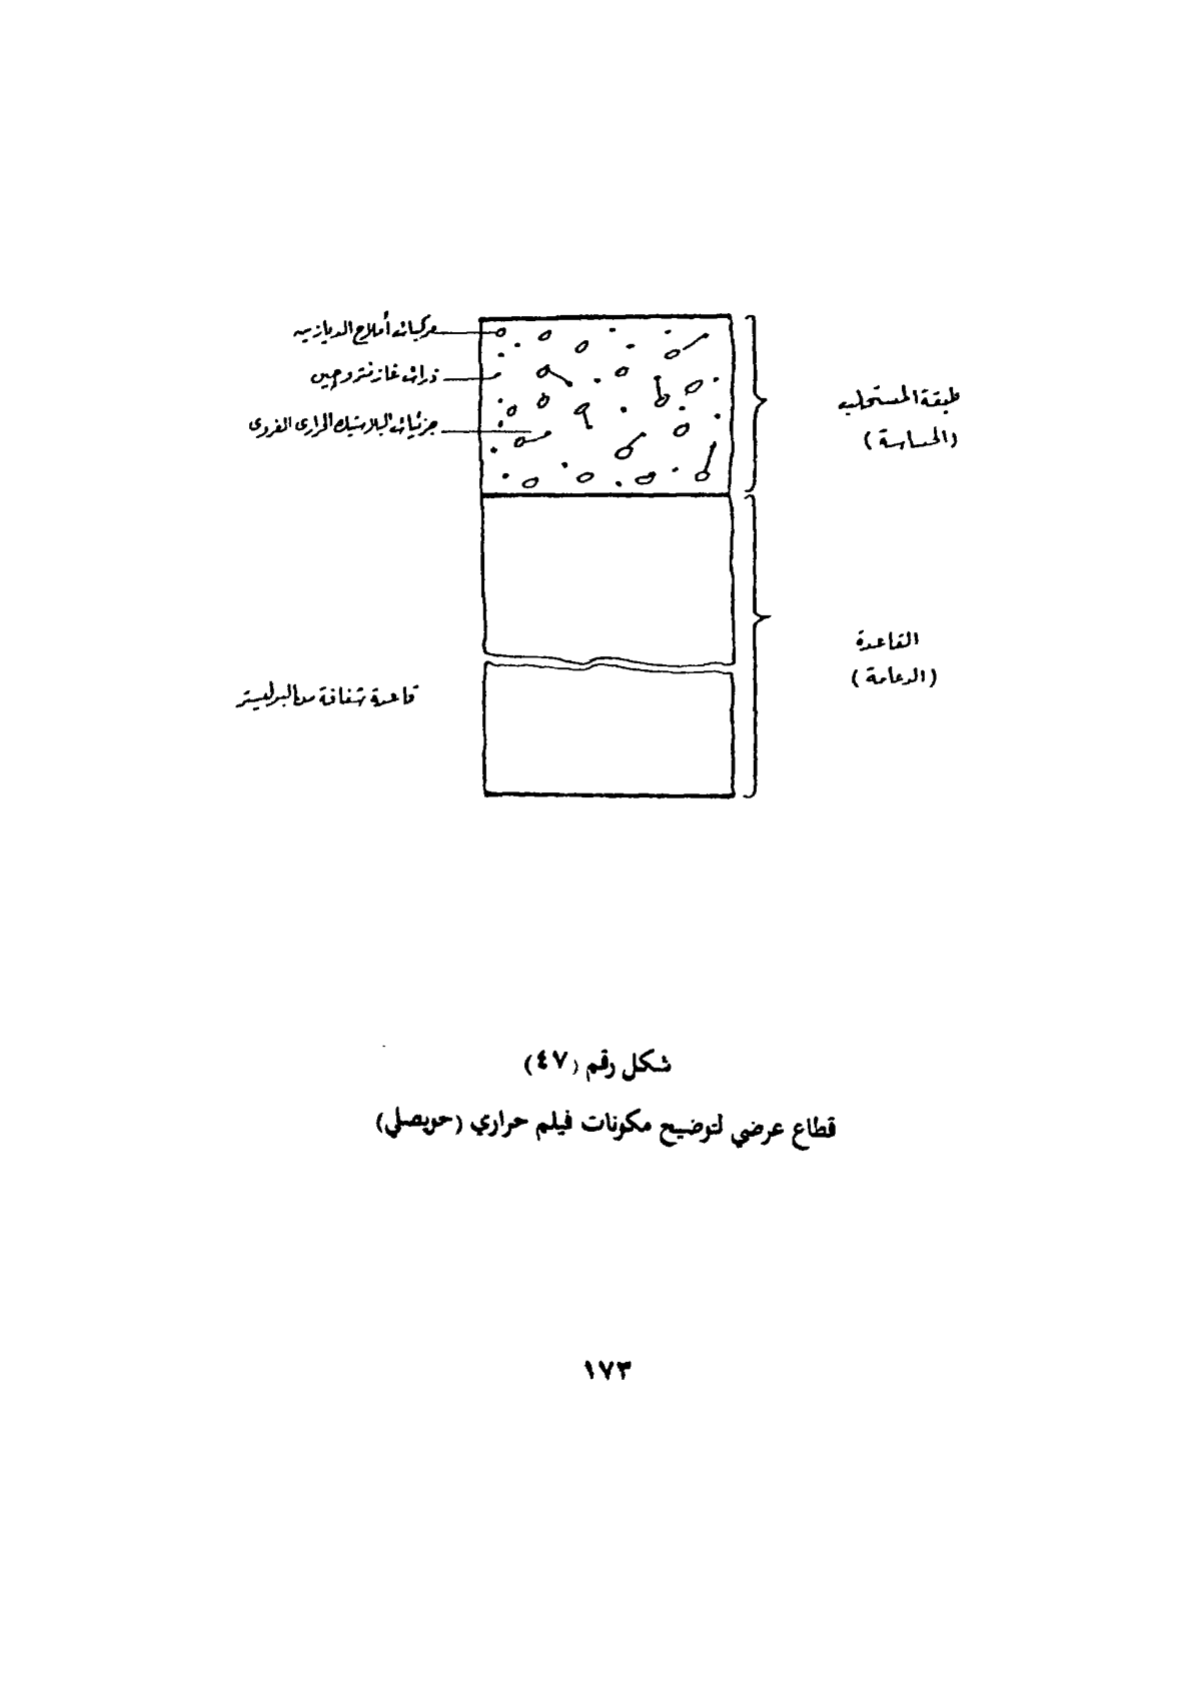 مركبات أملاح الديازيه
ذرات غاز نتروجين
جزئيات البلاستيك الحرارى الفروى
طبقة المستحلب
(الحساسة)
القاعدة
(الدعامة)
قاعدة شفافة من البوليستر
شكل رقم (٤٧)
قطاع عرضي لتوضيح مكونات فيلم حراري (حويصلي)
١٧٣